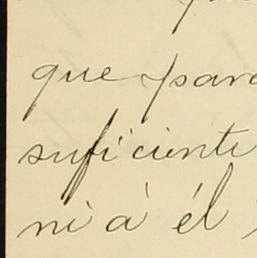 que para
suficiente
ni á él